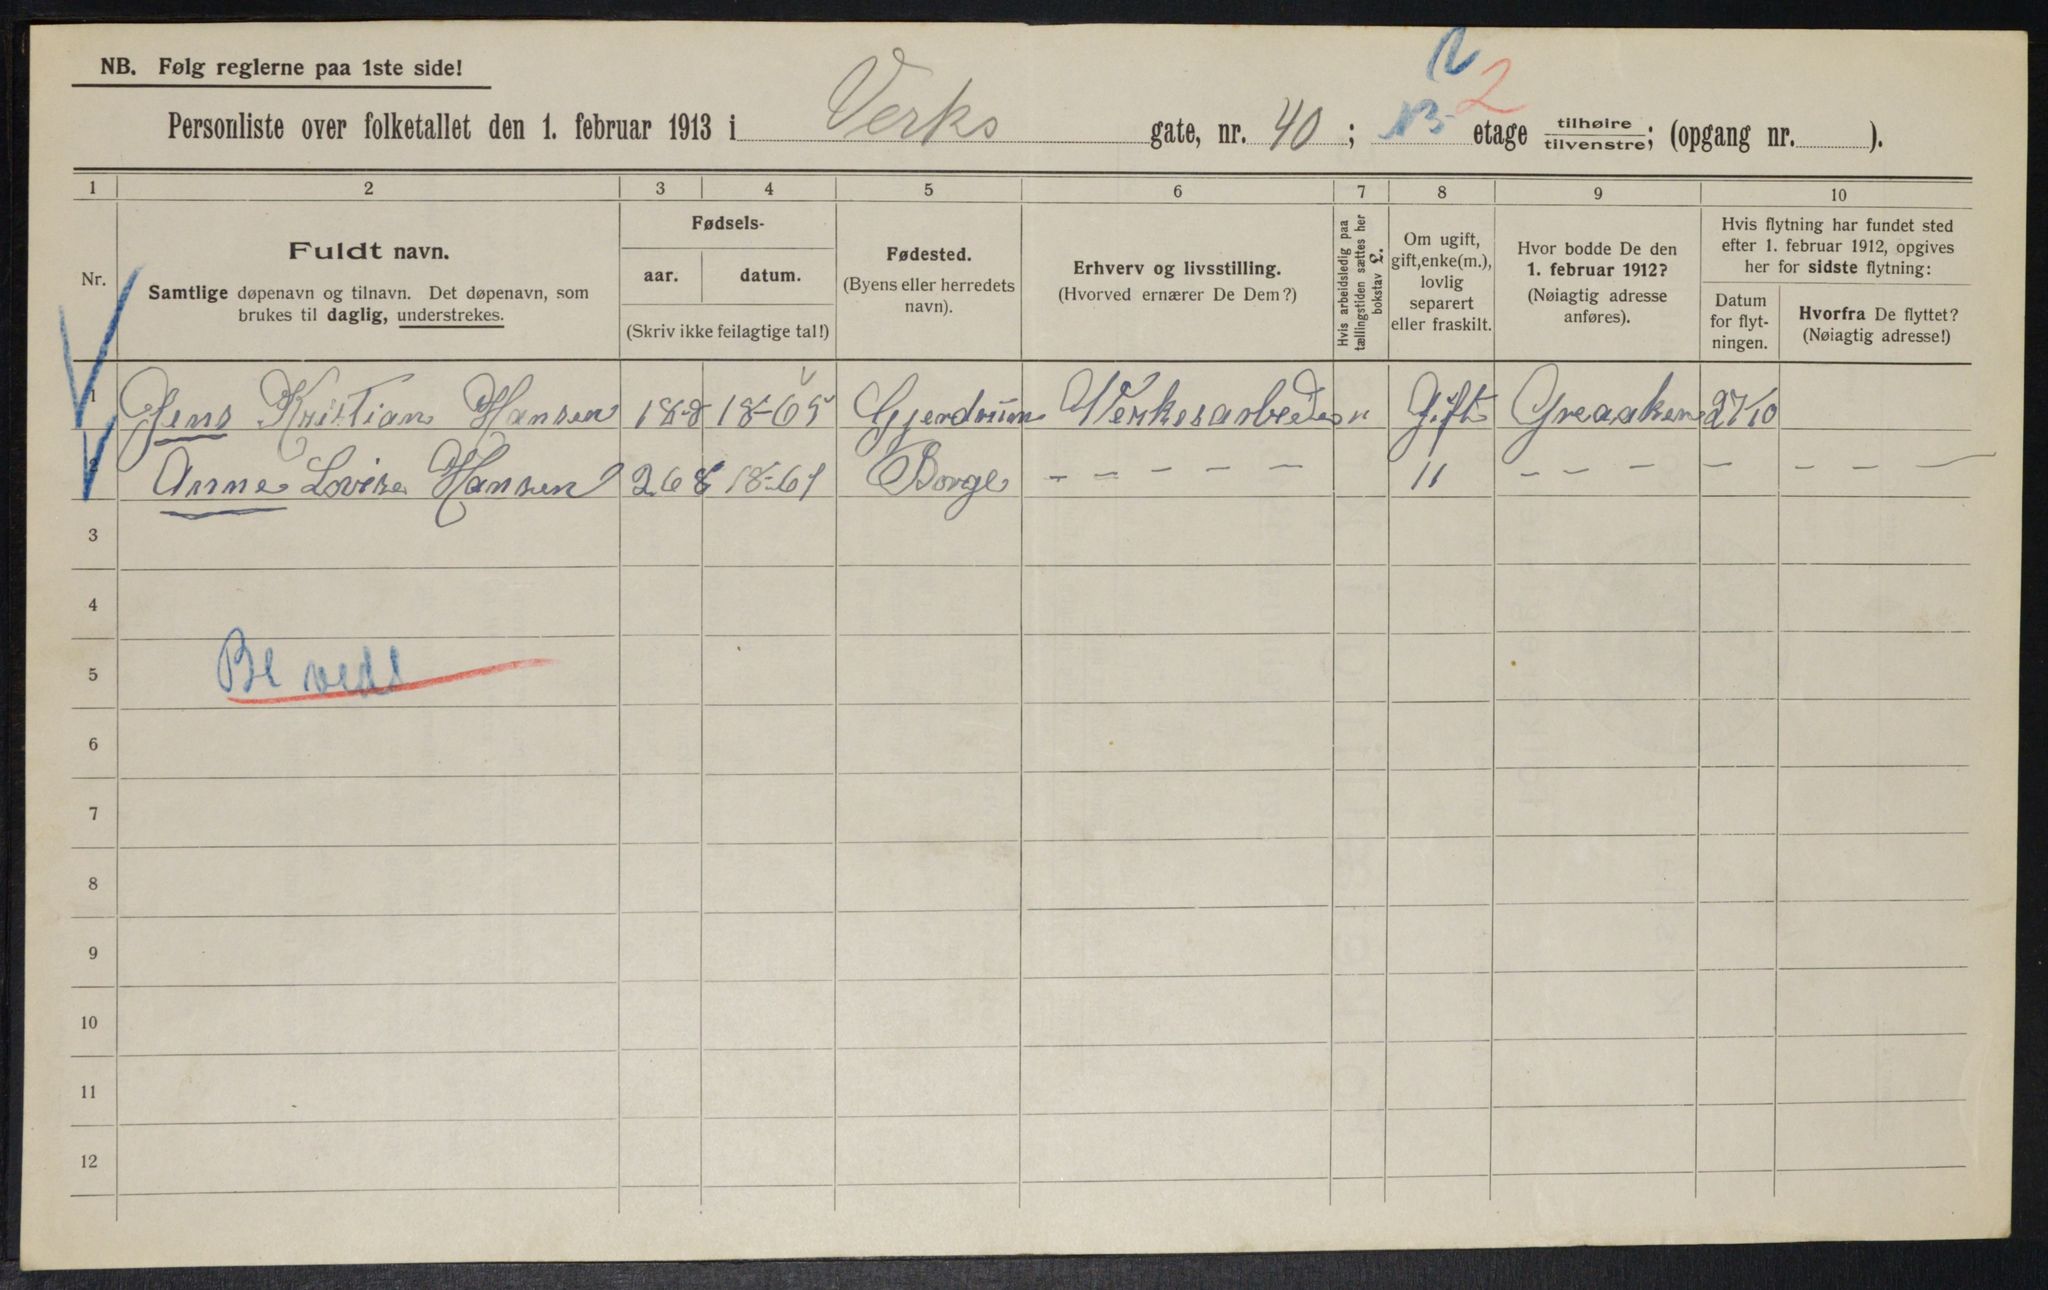 NB. Følg reglerne paa 1ste side!
Personliste over folketallet den 1. februar 1913 i Verks gate, nr. 40; etage tilhøire tilvenstre; (opgang nr. ).
2
1 2 3 4 5 6 7 8 9 10
Nr.
Fuldt navn.
Samtlige døpenavn og tilnavn. Det døpenavn, som
brukes til daglig, understrekes.
Fødsels-
aar. datum.
(Skriv ikke feilagtige tal!)
Fødested.
(Byens eller herredets
navn).
Erhverv og livsstilling.
(Hvorved ernærer De Dem?)
Hvis arbeidsledig paa
tællingstiden sættes her
bokstav £.
Om ugift,
gift, enke(m.),
lovlig
separert
eller fraskilt.
Hvor bodde De den
1. februar 1912?
(Nøiagtig adresse
anføres).
Hvis flytning har fundet sted
efter 1. februar 1912, opgives
her for sidste flytning:
Datum
for flyt-
ningen.
Hvorfra De flyttet?
(Nøiagtig adresse!)
1 Jens Kristian Hansen 18-8 18-65 Gjerdrum Verkesarbeder Gift Greaaker 27/10
2 Anne Lovise Hansen 26 8 18-61 Borge - - - - - " - - - - - - - -
3
4
5
6
7
8
9
10
11
12